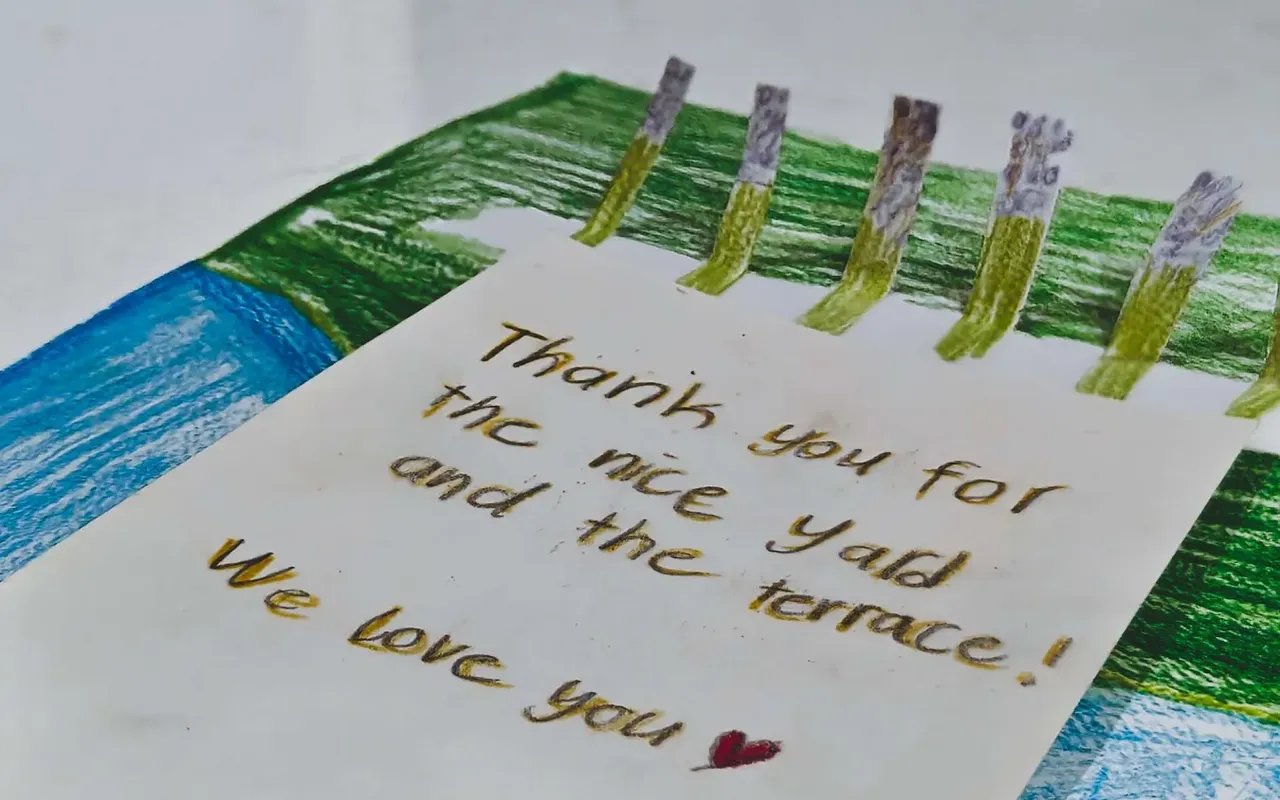 Thank you for
the nice yard
and the terrace!
We love you ❤